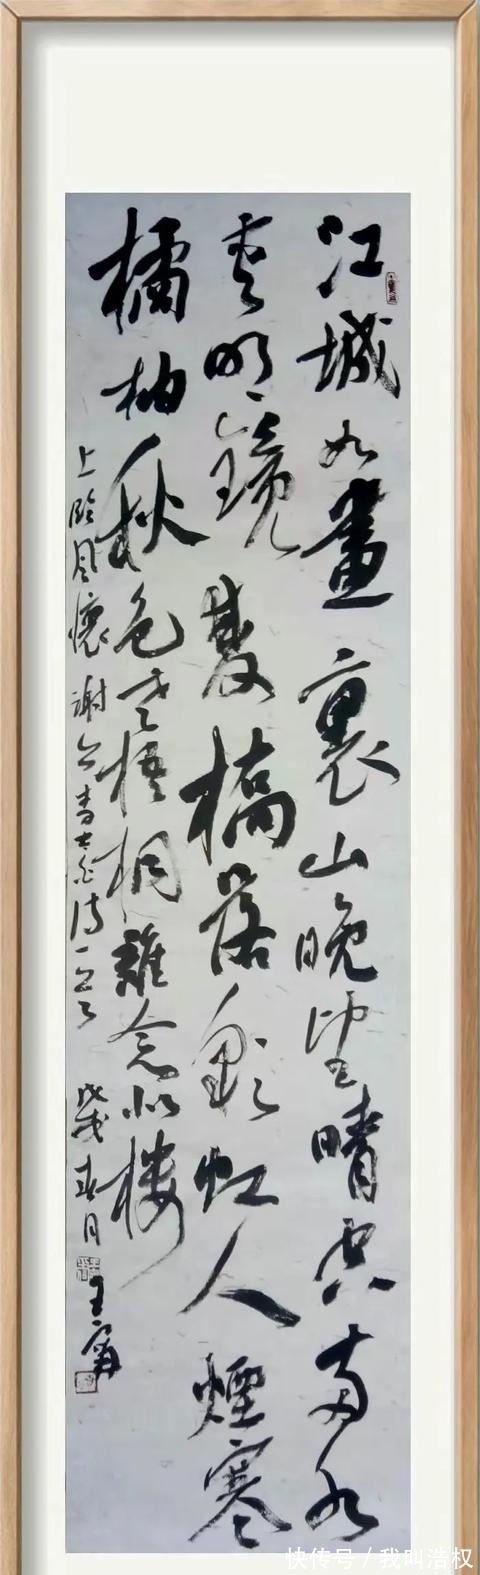 江城如畫裏山晚望晴空兩水
夾明鏡雙橋落彩虹人煙寒
橘柚秋色老梧桐誰念北樓
上臨風懷謝公李太白詩一首 戊戌春月 王
快传号/我叫浩权